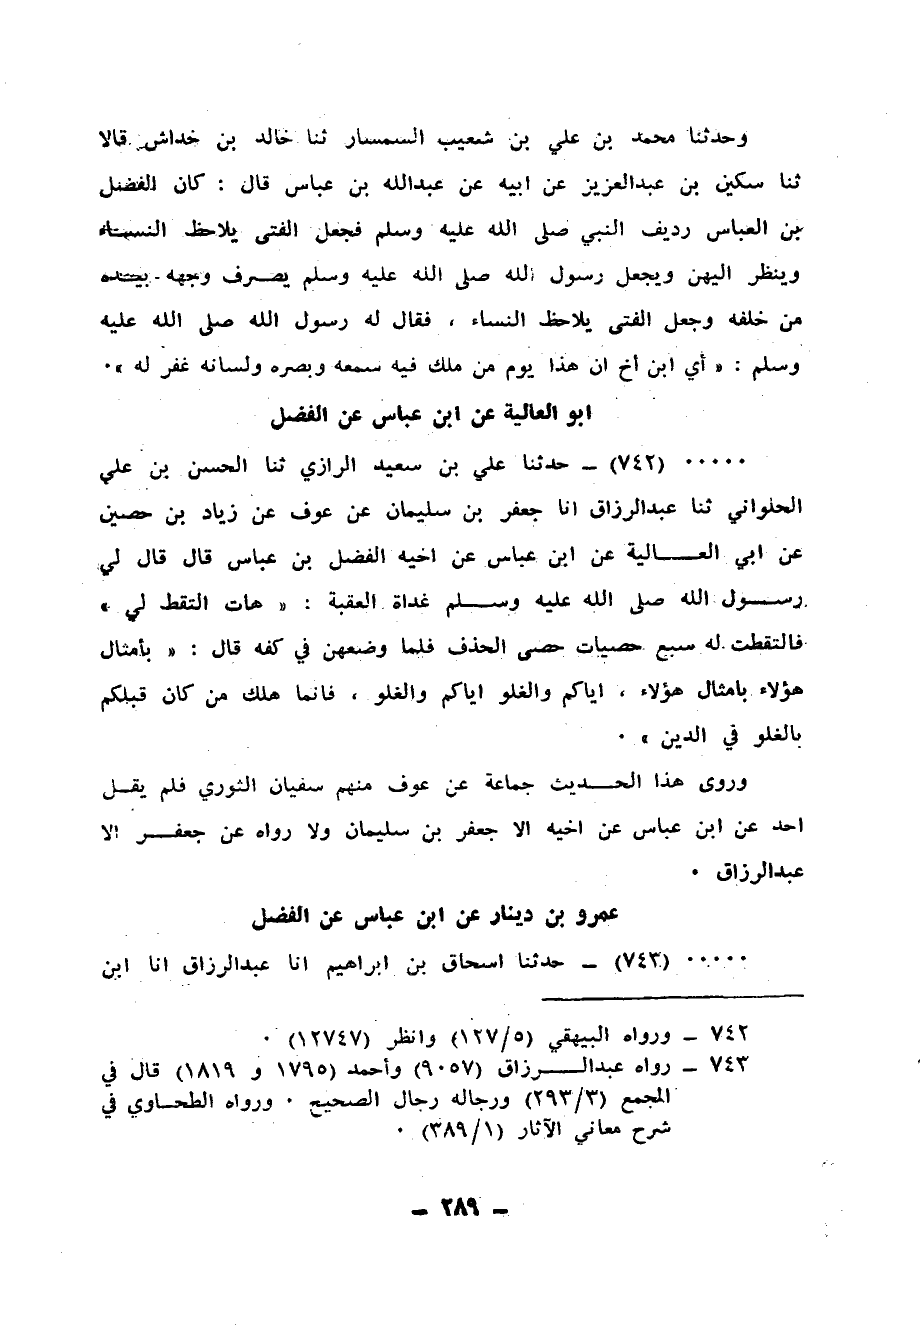 وحدثنا محمد بن علي بن شعيب السمسار ثنا خالد بن خداش قالا
ثنا سكين بن عبدالعزيز عن ابيه عن عبدالله بن عباس قال : كان الفضل
بن العباس رديف النبي صلى الله عليه وسلم فجعل الفتى يلاحظ النساء
وينظر اليهن ويجعل رسول الله صلى الله عليه وسلم يصرف وجهه بيده
من خلفه وجعل الفتى يلاحظ النساء ، فقال له رسول الله صلى الله عليه
وسلم : « أي ابن أخ ان هذا يوم من ملك فيه سمعه وبصره ولسانه غفر له »٠
ابو العالية عن ابن عباس عن الفضل
٠٠٠٠٠ (٧٤٢) ـ حدثنا علي بن سعيد الرازي ثنا الحسن بن علي
الحلواني ثنا عبدالرزاق انا جعفر بن سليمان عن عوف عن زياد بن حصين
عن ابي العـــالية عن ابن عباس عن اخيه الفضل بن عباس قال قال لي
رســول الله صلى الله عليه وســلم غداة العقبة : « هات التقط لي »
فالتقطت له سبع حصيات حصى الحذف فلما وضعهن في كفه قال : « بأمثال
هؤلاء بامثال هؤلاء ، اياكم والغلو اياكم والغلو ، فانما هلك من كان قبلكم
بالغلو في الدين » ٠
وروى هذا الحــديث جماعة عن عوف منهم سفيان الثوري فلم يقــل
احد عن ابن عباس عن اخيه الا جعفر بن سليمان ولا رواه عن جعفــر الا
عبدالرزاق ٠
عمرو بن دينار عن ابن عباس عن الفضل
٠٠٠٠٠ (٧٤٣) ـ حدثنا اسحاق بن ابراهيم انا عبدالرزاق انا ابن
٧٤٢ ـ ورواه البيهقي (١٢٧/٥) وانظر (١٢٧٤٧) ٠
٧٤٣ ـ رواه عبدالــــرزاق (٩٠٥٧) وأحمد (١٧٩٥ و ١٨١٩) قال في
المجمع (٢٩٣/٣) ورجاله رجال الصحيح ٠ ورواه الطحـاوي في
شرح معاني الآثار (٣٨٩/١) ٠
ـ ٢٨٩ ـ